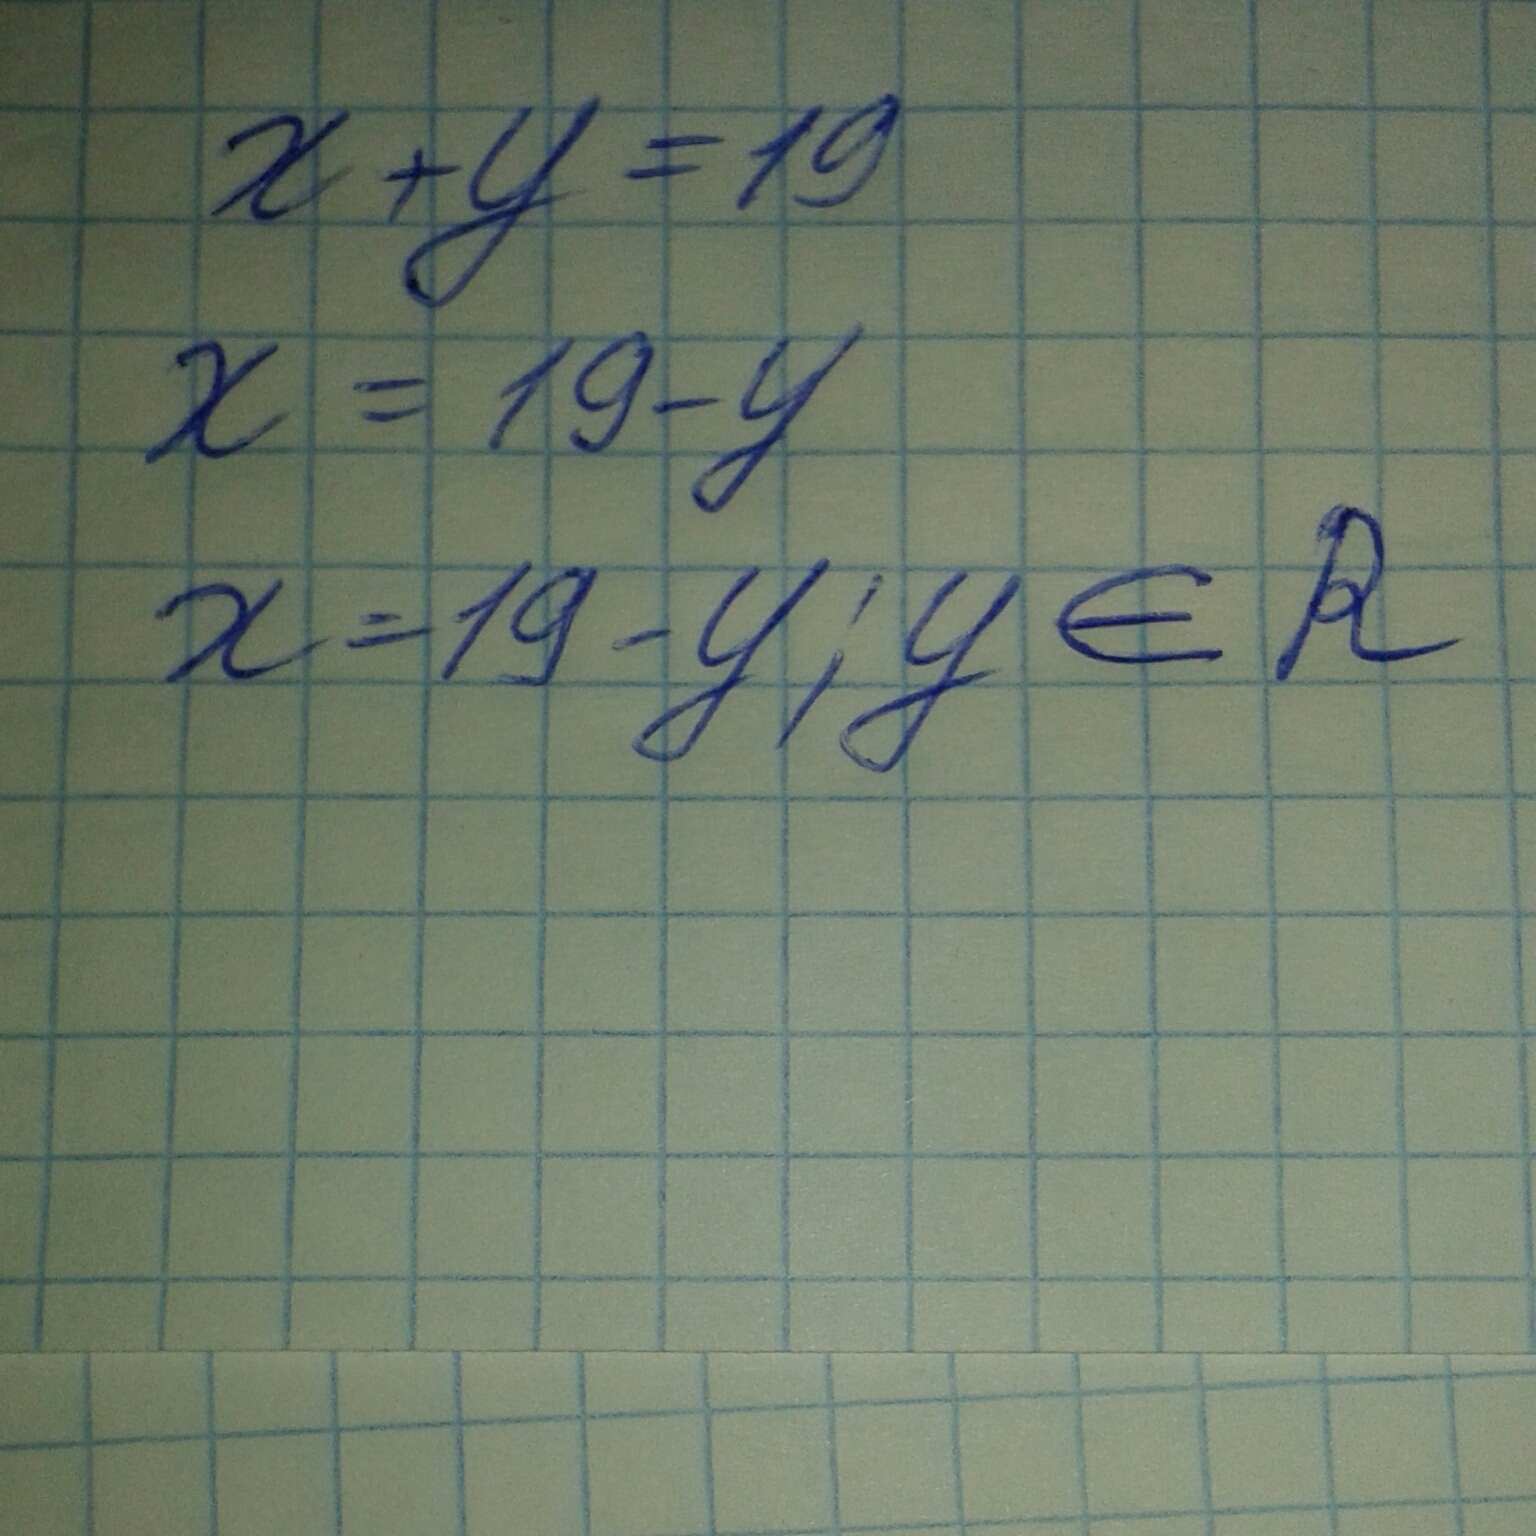 x + y = 19
x = 19 - y
x = 19 - y; y ∈ R